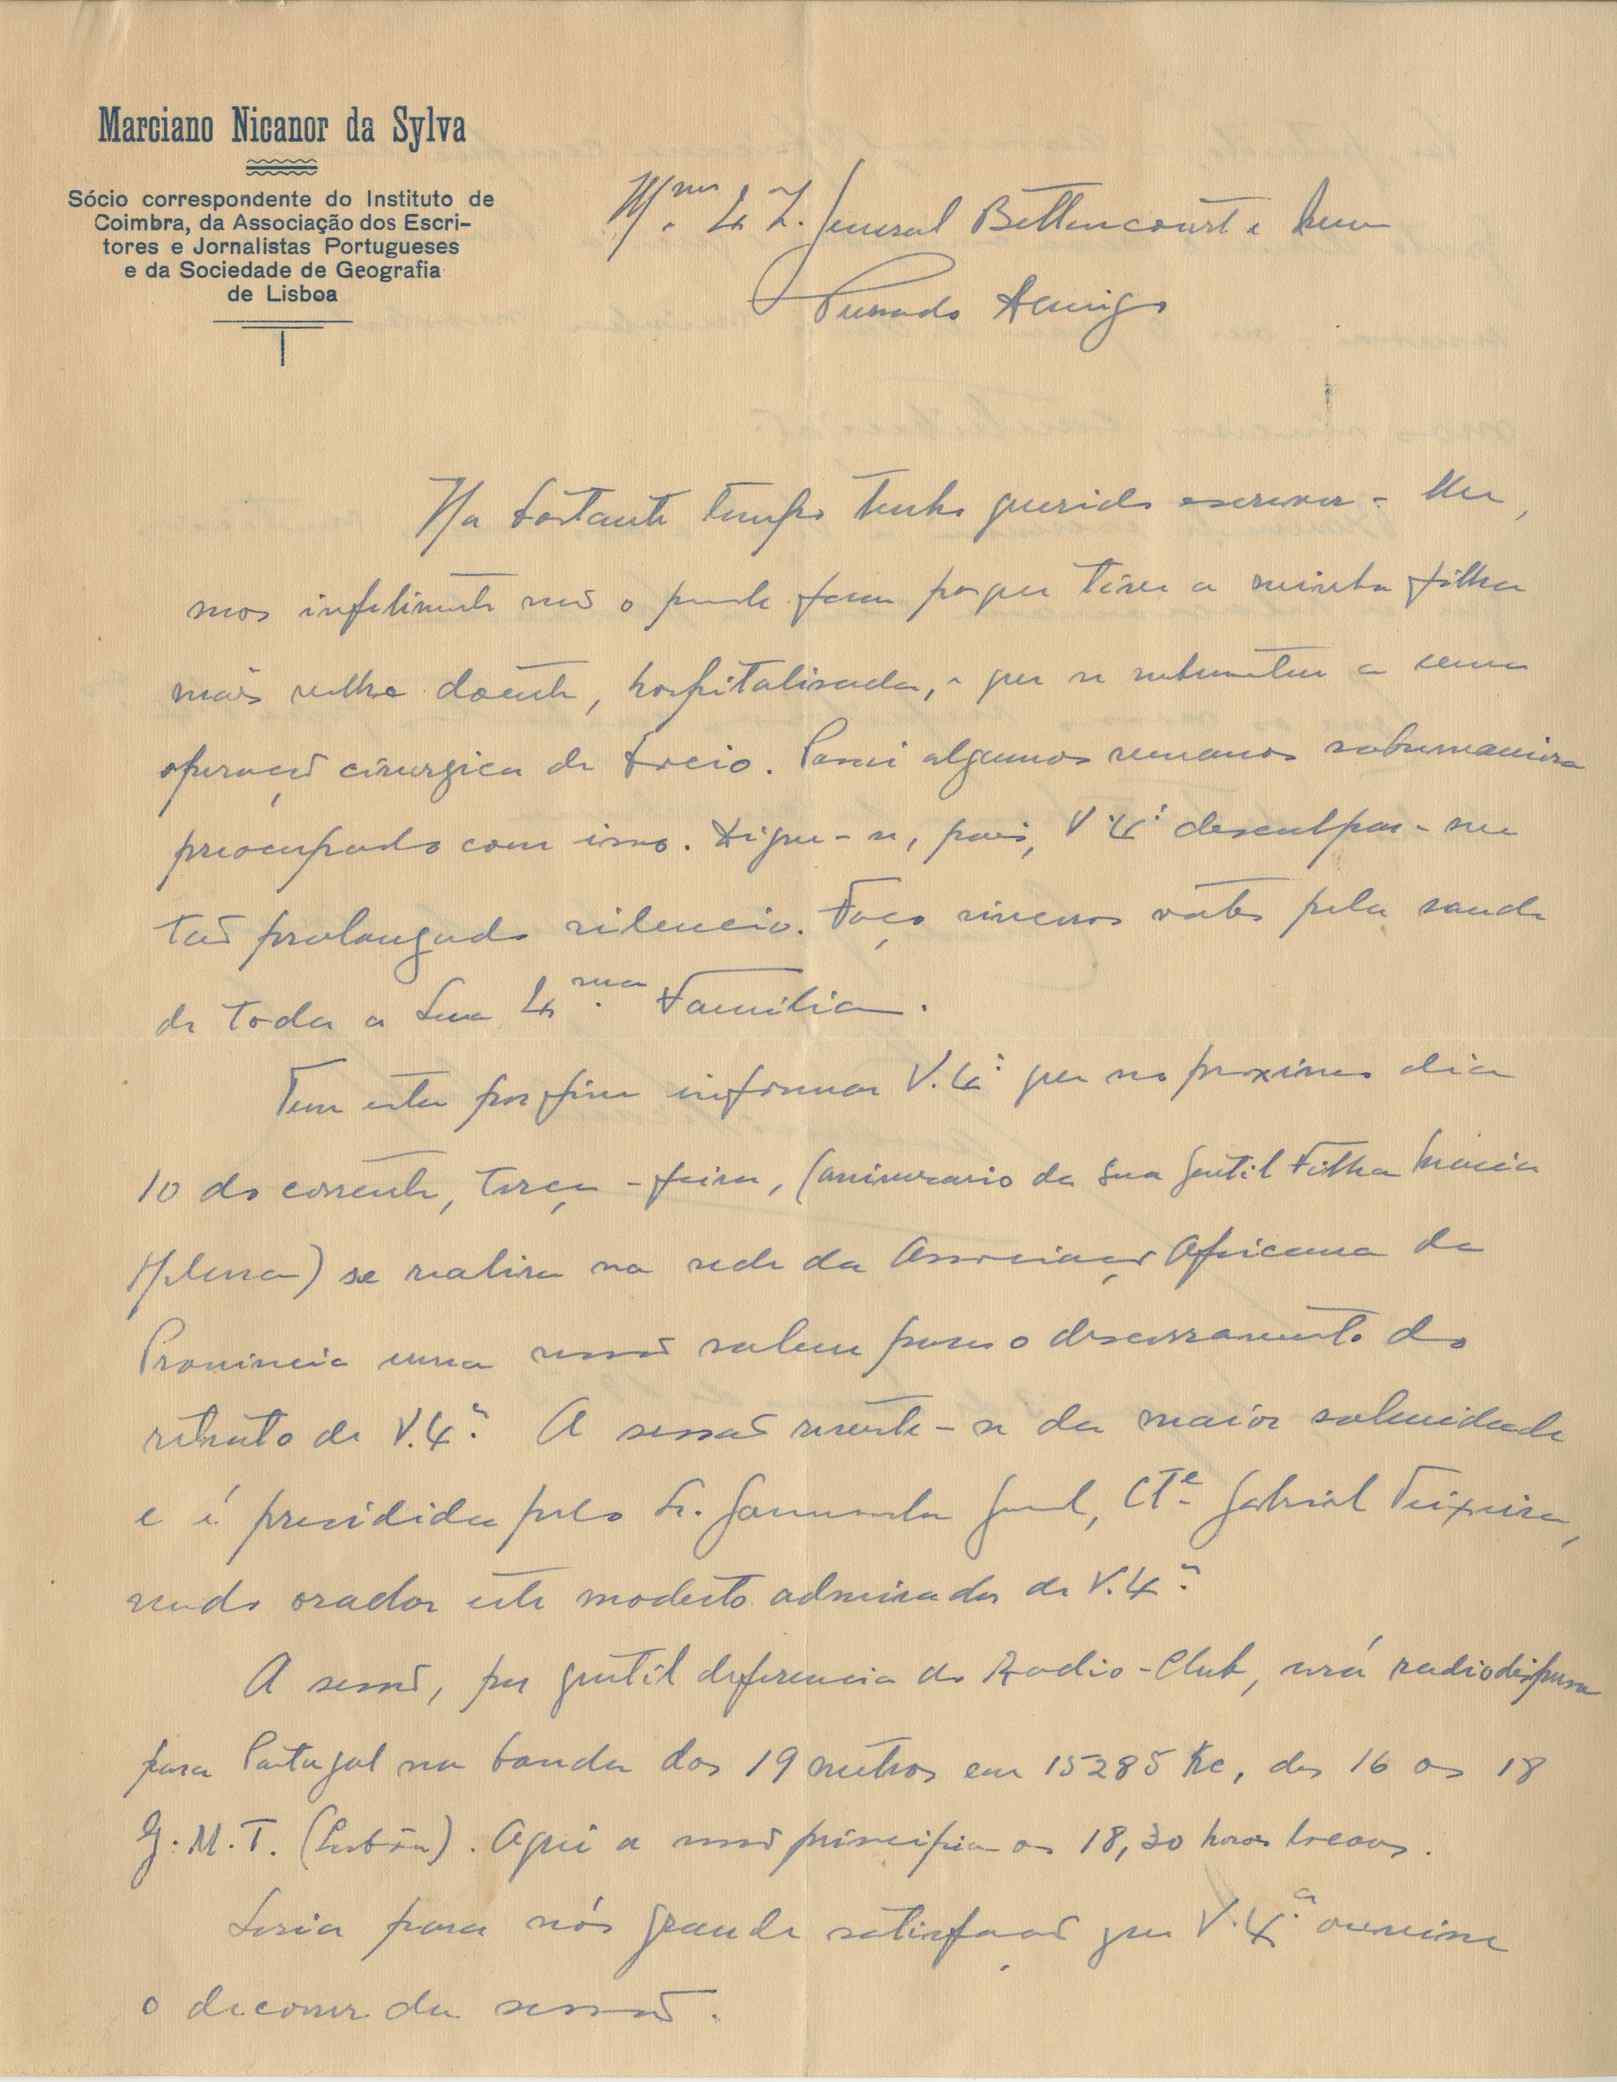 Marciano Nicanor da Sylva
Sócio correspondente do Instituto de
Coimbra, da Associação dos Escri-
tores e Jornalistas Portugueses
e da Sociedade de Geografia
de Lisboa
General Bettencourt e meu
Prezado Amigo
Ha bastante tempo tenho querido escrever-lhe,
mas infelizmente não o pude fazer porque tive a minha filha
mais velha doente, hospitalisada, e que se submeteu a uma
operação cirurgica de bocio. Passei algumas semanas sobremaneira
preocupado com isso. Digne-se, pois, V. Exª desculpar-me
tão prolongado silencio. Faço sinceros votos pela saude
de toda a Sua Exma Familia.
Tem esta por fim informar V. Exª que no proximo dia
10 do corrente, terça-feira, (aniversario da Sua gentil Filha Maria
Helena) se realisa na sede da Associação Africana da
Provincia uma sessão solene para o descerramento do
retrato de V. Exª. A sessão reveste-se da maior solenidade
e é presidida pelo Sr. Governador Geral, Cte Gabriel Teixeira,
sendo orador este modesto admirador de V. Exª.
A sessão, por gentil deferencia do Radio-Club, será radiodifusa
para Portugal na banda dos 19 metros em 15285 Kc, das 16 as 18
G.M.T. (Lisbôa). Aqui a sessão principia as 18,30 horas locaes.
Seria para nós grande satisfação que V. Exª ouvisse
o decorrer da sessão.